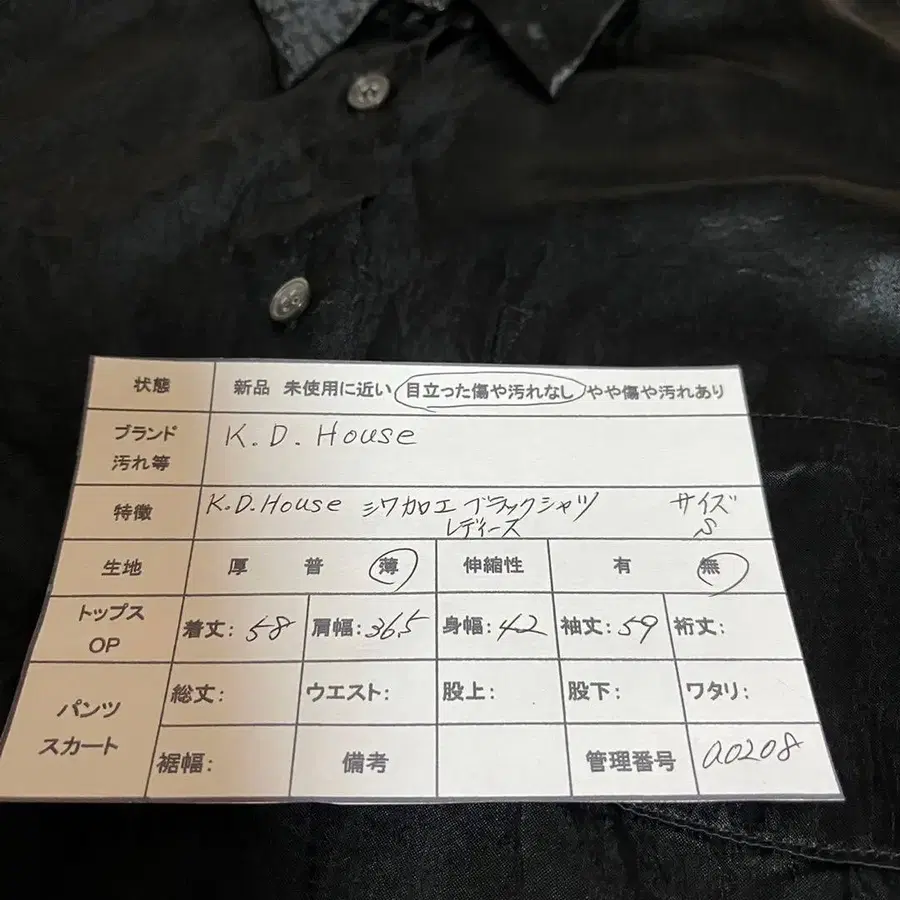 状態 新品 未使用に近い 目立った傷や汚れなし やや傷や汚れあり
ブランド K.D.House
汚れ等
特徴 K.D.House シワカロエ ブラックシャツ サイズ
レディース S
生地 厚 普 薄 伸縮性 有 無
トップス
OP 着丈: 58 肩幅: 36.5 身幅: 42 袖丈: 59 裄丈:
パンツ
スカート 総丈: ウエスト: 股上: 股下: ワタリ:
裾幅: 備考 管理番号 a0208